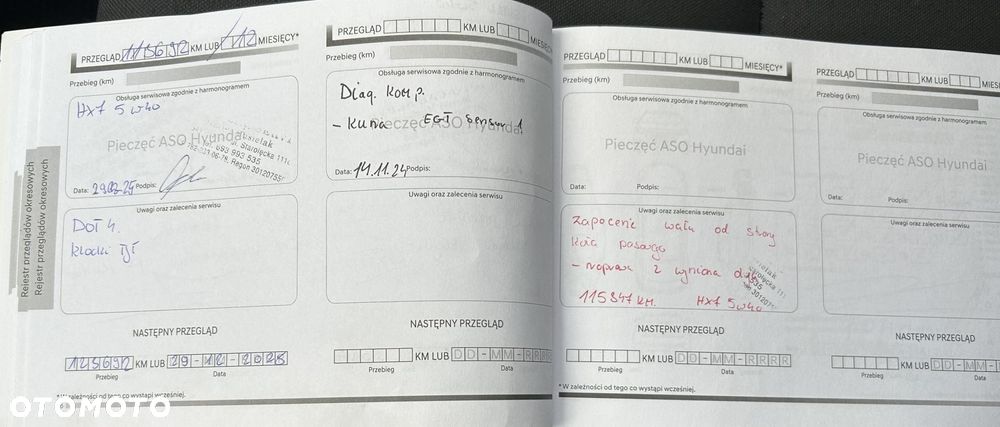 PRZEGLĄD 115692 KM LUB /12 MIESIĘCY*
Przebieg (km)
Obsługa serwisowa zgodnie z harmonogramem
Hx7 5w40
Pieczęć ASO Hyundai
Data: Podpis:
Uwagi oraz zalecenia serwisu
DOT 4.
klocki TjŁ
NASTĘPNY PRZEGLĄD
125692 KM LUB 29-12-2025
Przebieg Data
*W zależności od tego co wystąpi wcześniej.
Rejestr przeglądów okresowych
Rejestr przeglądów okresowych
PRZEGLĄD KM LUB MIESIĘCY*
Przebieg (km)
Obsługa serwisowa zgodnie z harmonogramem
Diag. Komp.
- EGT Sensor 1
Pieczęć ASO Hyundai
Data: 14.11.24 Podpis:
Uwagi oraz zalecenia serwisu
NASTĘPNY PRZEGLĄD
KM LUB DD-MM-RRRR
Przebieg Data
PRZEGLĄD KM LUB MIESIĘCY*
Przebieg (km)
Obsługa serwisowa zgodnie z harmonogramem
Pieczęć ASO Hyundai
Data: Podpis:
Uwagi oraz zalecenia serwisu
Zapocenie wału od strony
koła pasowego
- naprawa z wymianą
115847 km. Hx7 5w40
NASTĘPNY PRZEGLĄD
KM LUB DD-MM-RRRR
Przebieg Data
*W zależności od tego co wystąpi wcześniej.
PRZEGLĄD KM LUB
Przebieg (km)
Obsługa serwisowa zgodnie z harmonogramem
Pieczęć ASO Hyundai
Data: Podpis:
Uwagi oraz zalecenia serwisu
NASTĘPNY PRZEGLĄD
KM LUB DD-MM
Przebieg Data
OTOMOTO